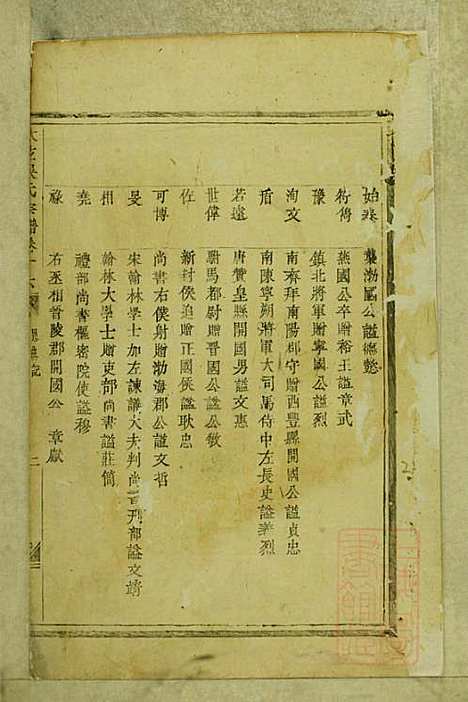 始 勃國公謚德懿
衍傅 燕國公卒贈裕王謚章武
豫 鎮北將軍贈寧國公謚烈
洵文 南齊拜南陽郡守贈西豐縣開國公謚貞忠
盾 南陳寧朔將軍大司馬侍中左長史謚義烈
若遠 唐贊皇縣開國男謚文惠
世偉 駙馬都尉贈晉國公謚公敏
佐 新封侯追贈正國侯謚耿忠
可博 尚書右僕射贈渤海郡公謚文哲
旻 宋翰林學士加左諫議大夫判尚書刑部謚文靖
相 翰林大學士贈吏部尚書謚莊簡
堯 禮部尚書樞密院使謚穆
祿 右丞相晉陵郡開國公 章獻
吳氏宗譜卷十六 恩典記 二